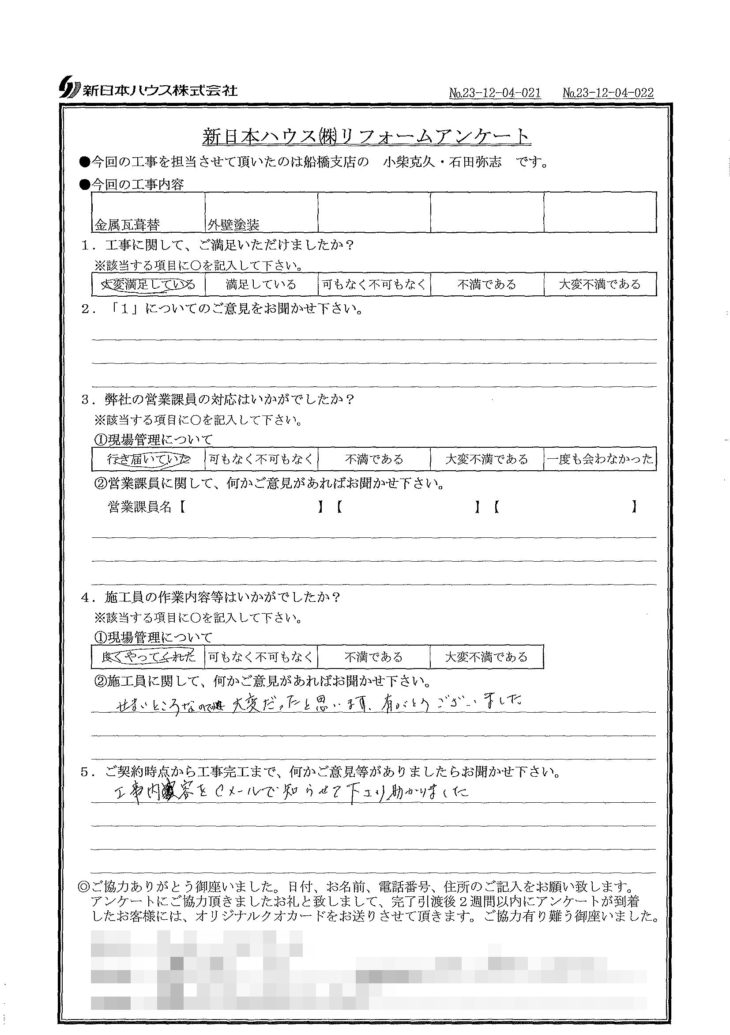 新日本ハウス株式会社
No.23-12-04-021 No.23-12-04-022
新日本ハウス㈱リフォームアンケート
●今回の工事を担当させて頂いたのは船橋支店の 小柴克久・石田弥志 です。
●今回の工事内容
金属瓦葺替 外壁塗装
1．工事に関して、ご満足いただけましたか？
※該当する項目に○を記入して下さい。
大変満足している 満足している 可もなく不可もなく 不満である 大変不満である
2．「1」についてのご意見をお聞かせ下さい。
3．弊社の営業課員の対応はいかがでしたか？
※該当する項目に○を記入して下さい。
①現場管理について
行き届いていた 可もなく不可もなく 不満である 大変不満である 一度も会わなかった
②営業課員に関して、何かご意見があればお聞かせ下さい。
営業課員名【 】【 】【 】
4．施工員の作業内容等はいかがでしたか？
※該当する項目に○を記入して下さい。
①現場管理について
良くやってくれた 可もなく不可もなく 不満である 大変不満である
②施工員に関して、何かご意見があればお聞かせ下さい。
せまいところなので 大変だったと思います、有がとうございました
5．ご契約時点から工事完工まで、何かご意見等がありましたらお聞かせ下さい。
工事内容をCメールで知らせて下さり助かりました
◎ご協力ありがとう御座いました。日付、お名前、電話番号、住所のご記入をお願い致します。
アンケートにご協力頂きましたお礼と致しまして、完了引渡後2週間以内にアンケートが到着
したお客様には、オリジナルクオカードをお送りさせて頂きます。ご協力有り難う御座いました。